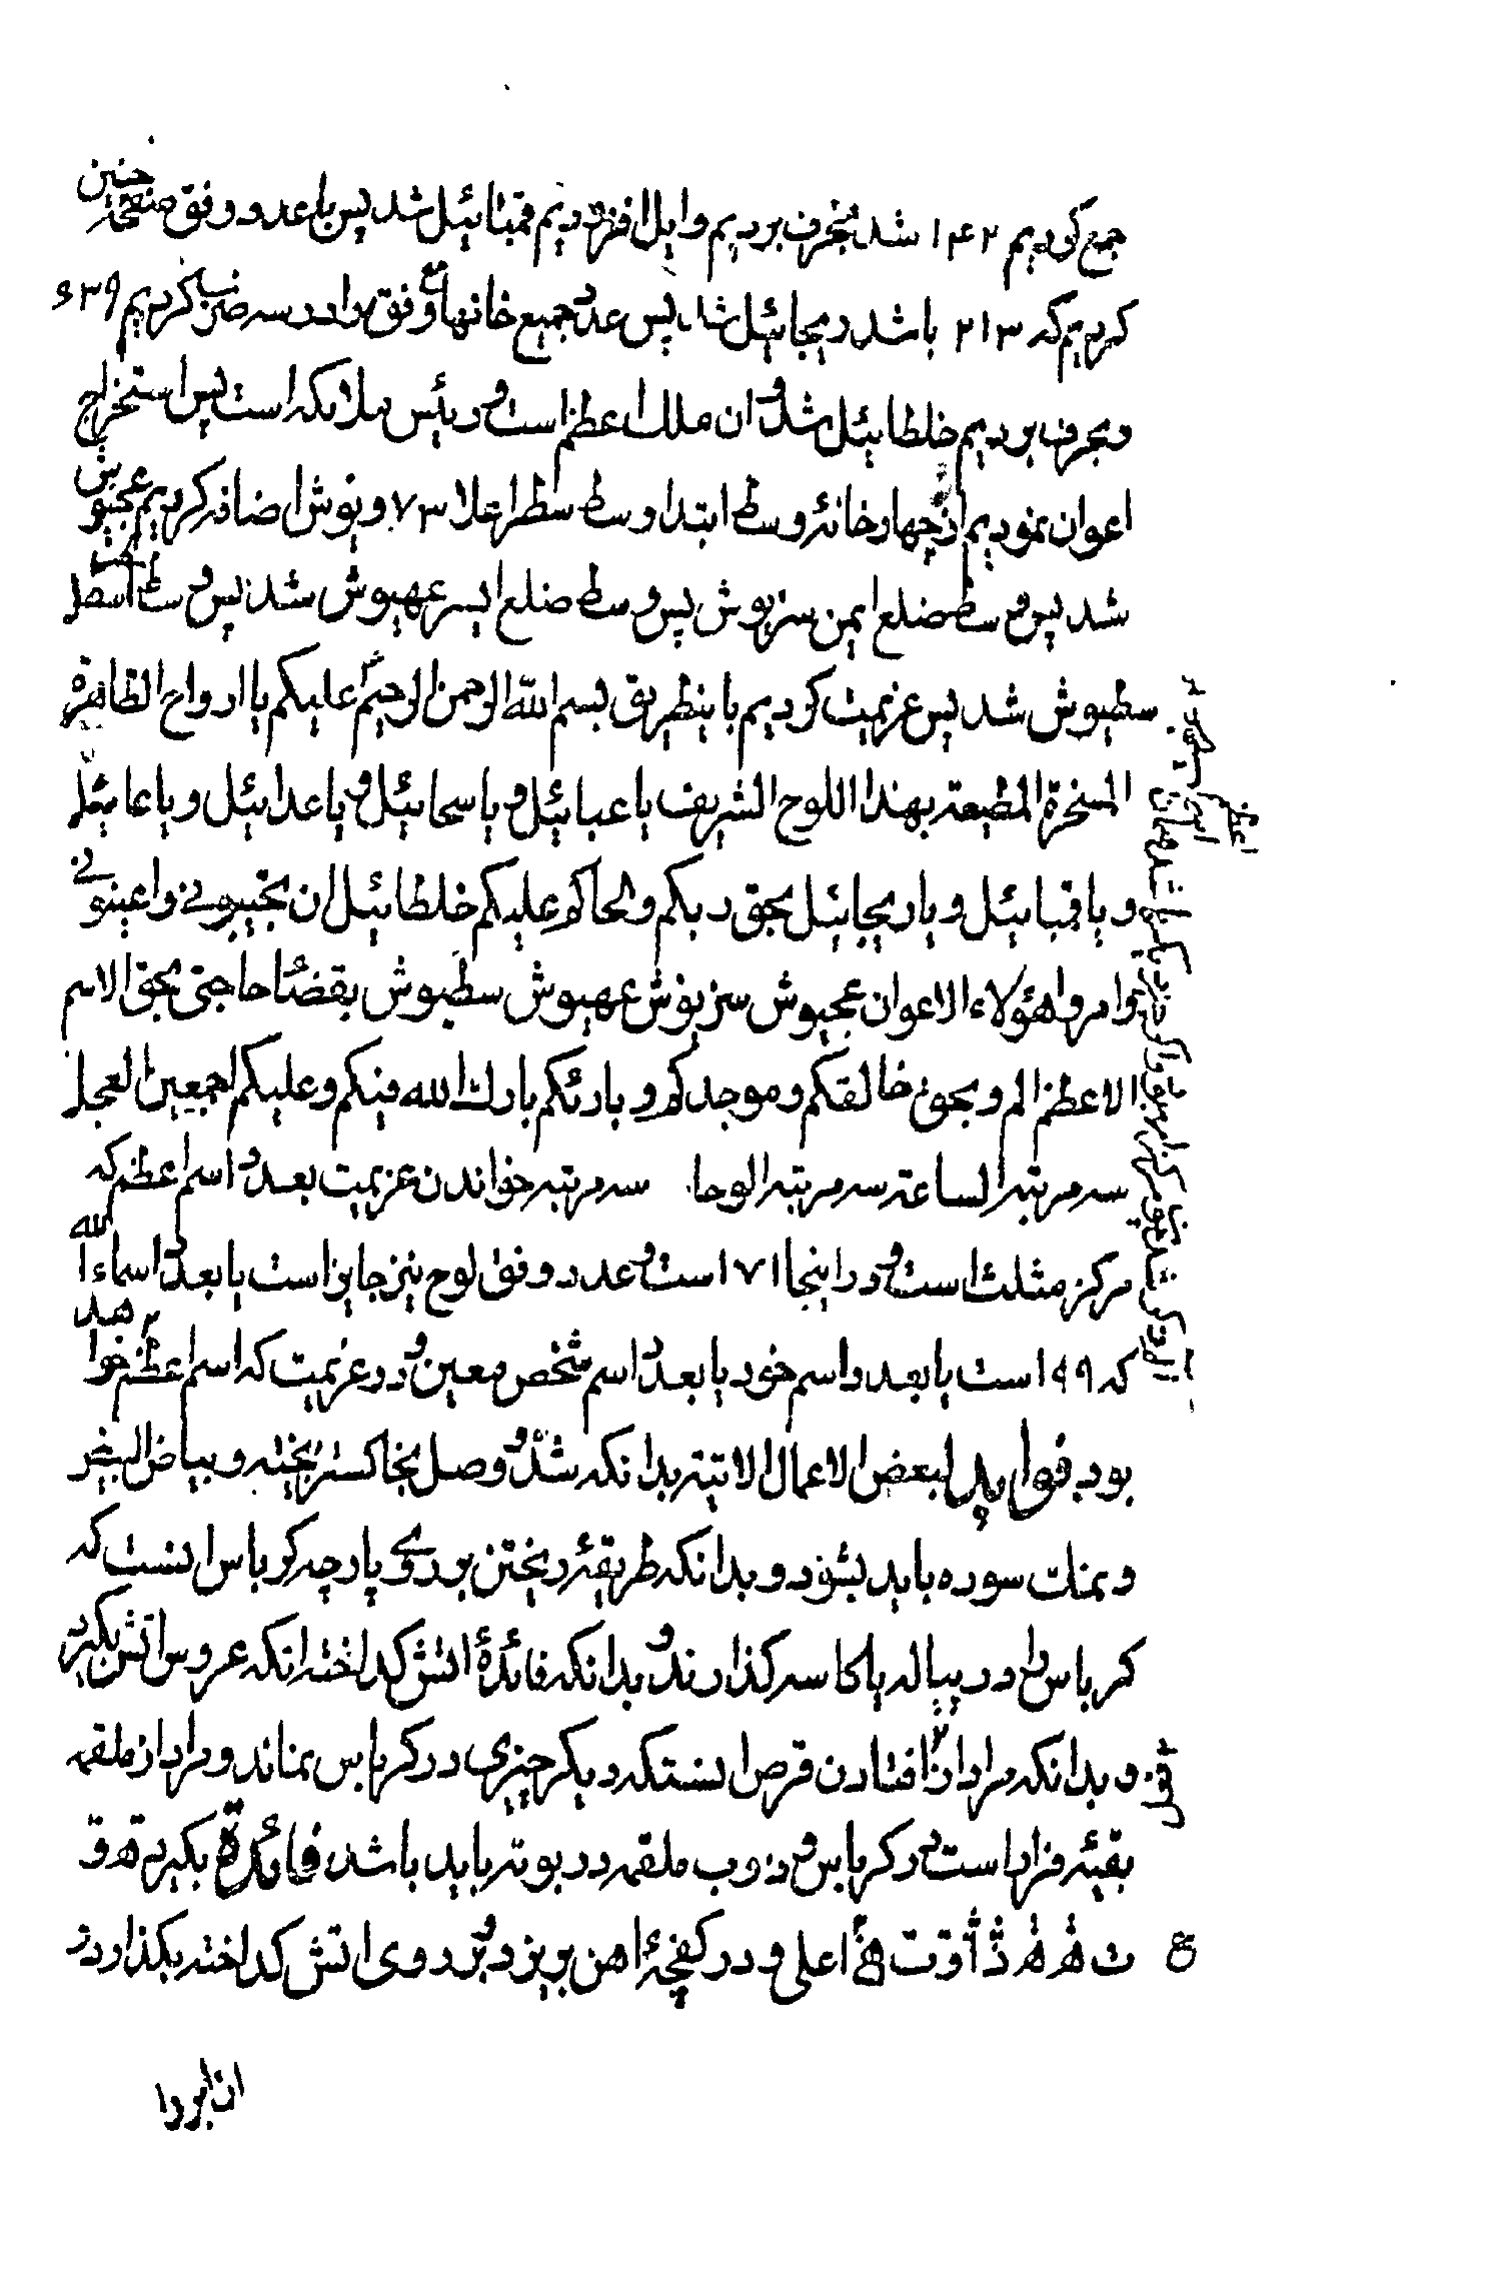 جمع کردیم ۱۴۲ شد بحرف بردیم وایل افزودیم قمبائیل شد پس باعدد وفق چنین
کردیم که ۲۱۳ باشد ریجائیل شد پس عدد جمیع خانهای وفق را در سه ضرب کردیم ۶۳۹
وبحرف بردیم خلطائیل شد و ان ملک اعظم است و رئیس ملائکه است پس استخراج
اعوان نمودیم از چهار خانۀ وسط ابتدا وسط سطر اعلا ۷۳ ویوش اضافه کردیم عجیوش
شد پس وسط ضلع ایمن سزیوش پس وسط ضلع ایسر عهیوش شد پس وسط اسفل
سطیوش شد پس عزیمت کردیم باینطریق بسم الله الرحمن الرحیم علیکم یا ارواح الطاهرة
المسخرة المطیعة بهذا اللوح الشریف یا عبائیل و یا سحائیل و یا عدائیل و یا عائیل
و یا قمبائیل و یا ریجائیل بحق ربکم والحاکم علیکم خلطائیل ان تجیبونی واعینونی
وامروا هؤلاء الاعوان عجیوش سزیوش عهیوش سطیوش بقضاء حاجتی بحق الاسم
الاعظم الم وبحق خالقکم وموجدکم وبارئکم بارک الله فیکم وعلیکم اجمعین العجل
سه مرتبه الساعة سه مرتبه الوحا سه مرتبه خواندن عزیمت بعدد اسم اعظم که
مرکز مثلث است و در اینجا ۷۱ است و عدد وفق لوح نیز جایز است یا بعدد اسماء الله
که ۹۹ است یا بعدد اسم خود یا بعدد اسم شخص معین و در عزیمت که اسم اعظم خواهد
بود فواید لبعض الاعمال الاتیة بدانکه شد و وصل بخاکستر بخته وبیاض البیض
ونمک سوده باید بشود و بدانکه طریقۀ ریختن بر روی پارچه کرباس انست که
کرباس را در پیاله یا کاسه کذارند و بدانکه فائدۀ اتش کداخته انکه عروس اتش بکیرد
و بدانکه مراد از افتادن قرص انستکه دیکر چیزی در کرباس نماند و مراد از ملقمه
بقیۀ فرار است در کرباس و ذوب ملقمه در بوته باید باشد فائدة بکیر
اعلی و در کفچۀ اهن بریزد و بر روی اتش کداخته بکذارد